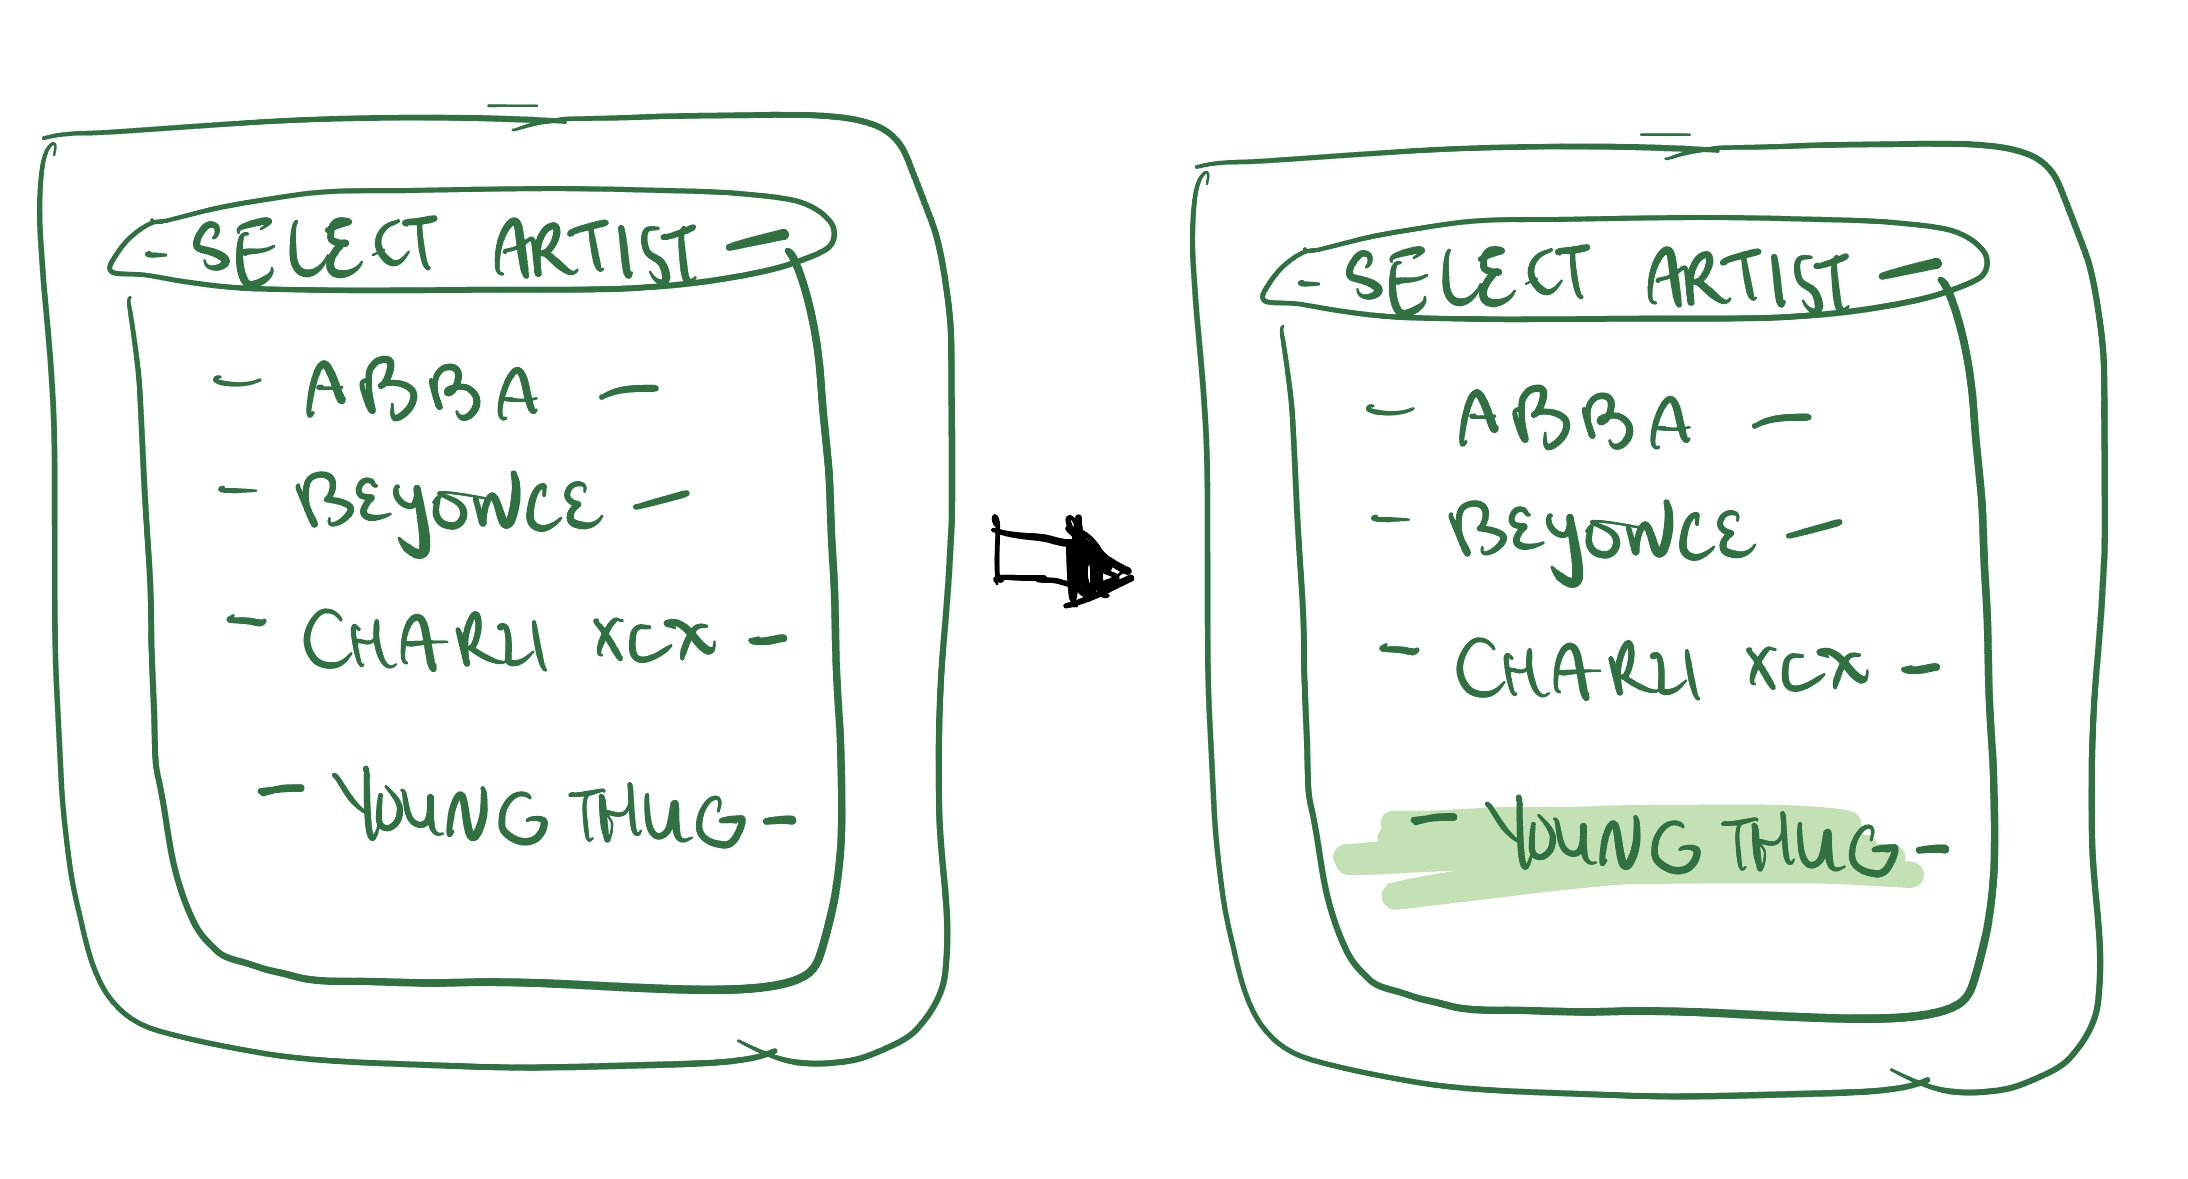 - SELECT ARTIST -
- ABBA -
- BEYONCE -
- CHARLI XCX -
- YOUNG THUG -
- SELECT ARTIST -
- ABBA -
- BEYONCE -
- CHARLI XCX -
- YOUNG THUG -